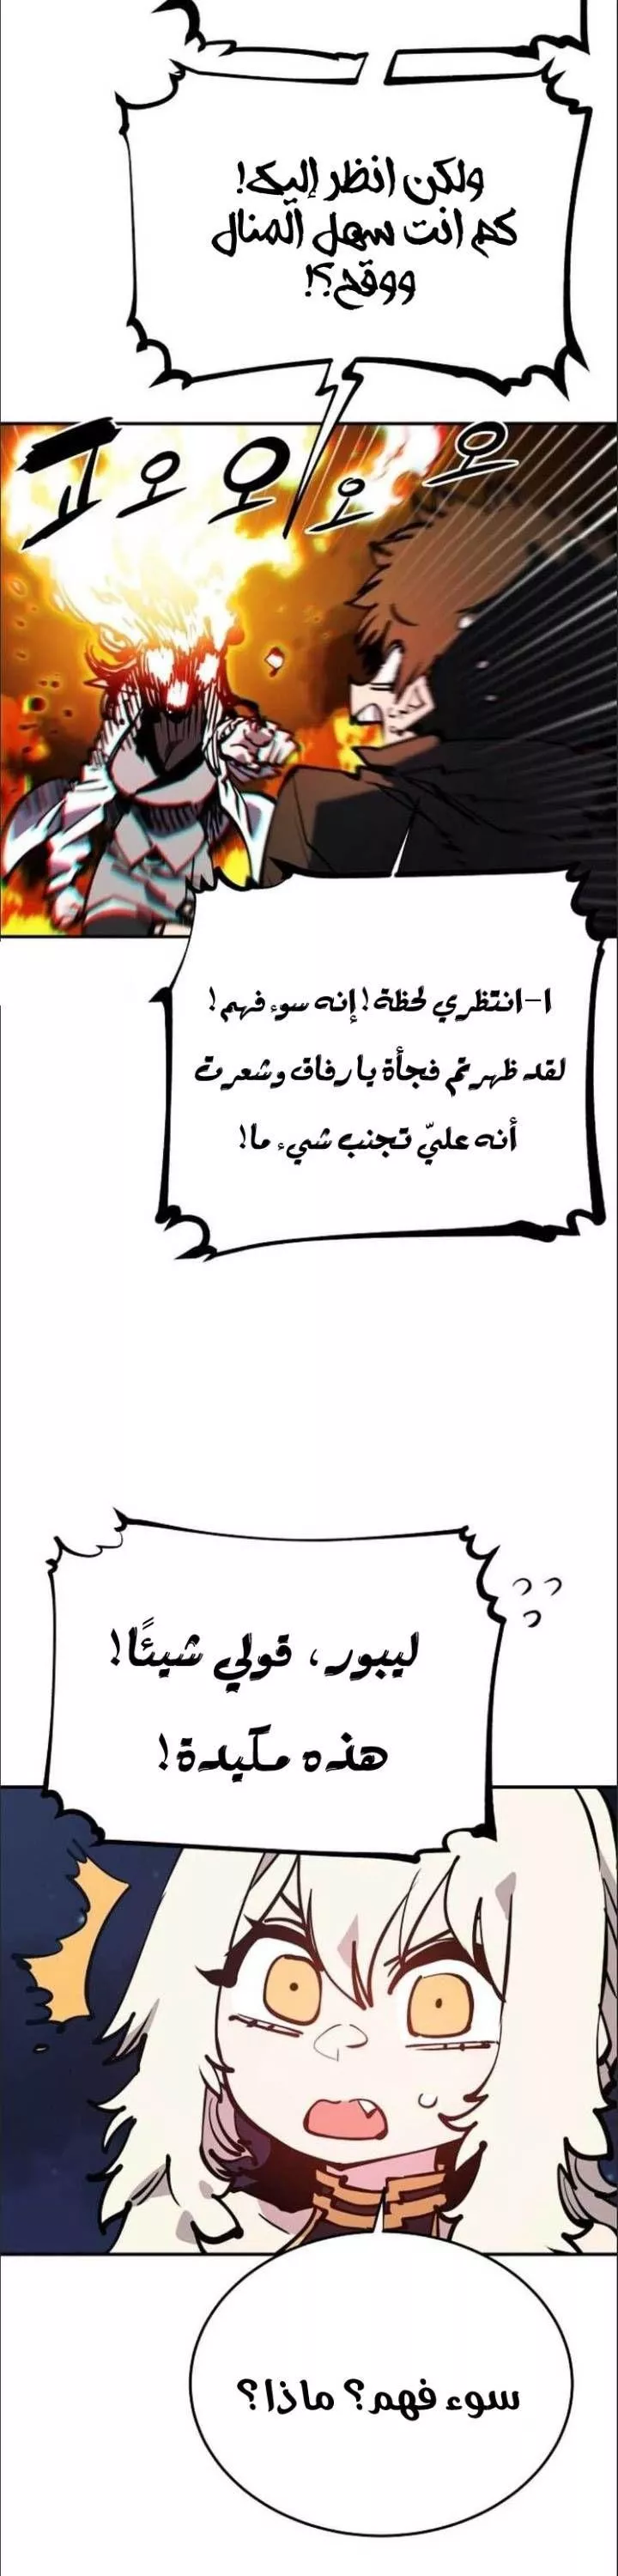 ولكن انظر إليك!
كم انت سهل المنال
ووقح؟!
고오오오오
ا-انتظري لحظة! إنه سوء فهم!
لقد ظهرتم فجأة يا رفاق وشعرت
أنه عليّ تجنب شيء ما!
ليبور، قولي شيئًا!
هذه مكيدة!
سوء فهم؟ ماذا؟